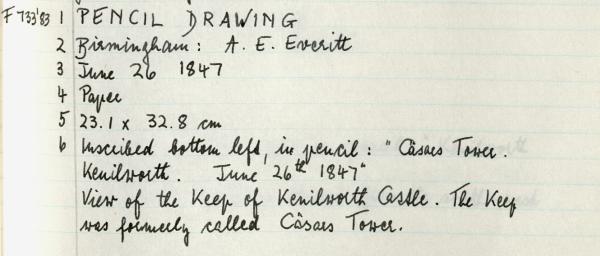 F 733'83 1 PENCIL DRAWING
2 Birmingham: A. E. Everitt
3 June 26 1847
4 Paper
5 23.1 x 32.8 cm
6 Inscribed bottom left, in pencil: "Cäsars Tower.
Kenilworth. June 26th 1847"
View of the Keep of Kenilworth Castle. The Keep
was formerly called Cäsars Tower.